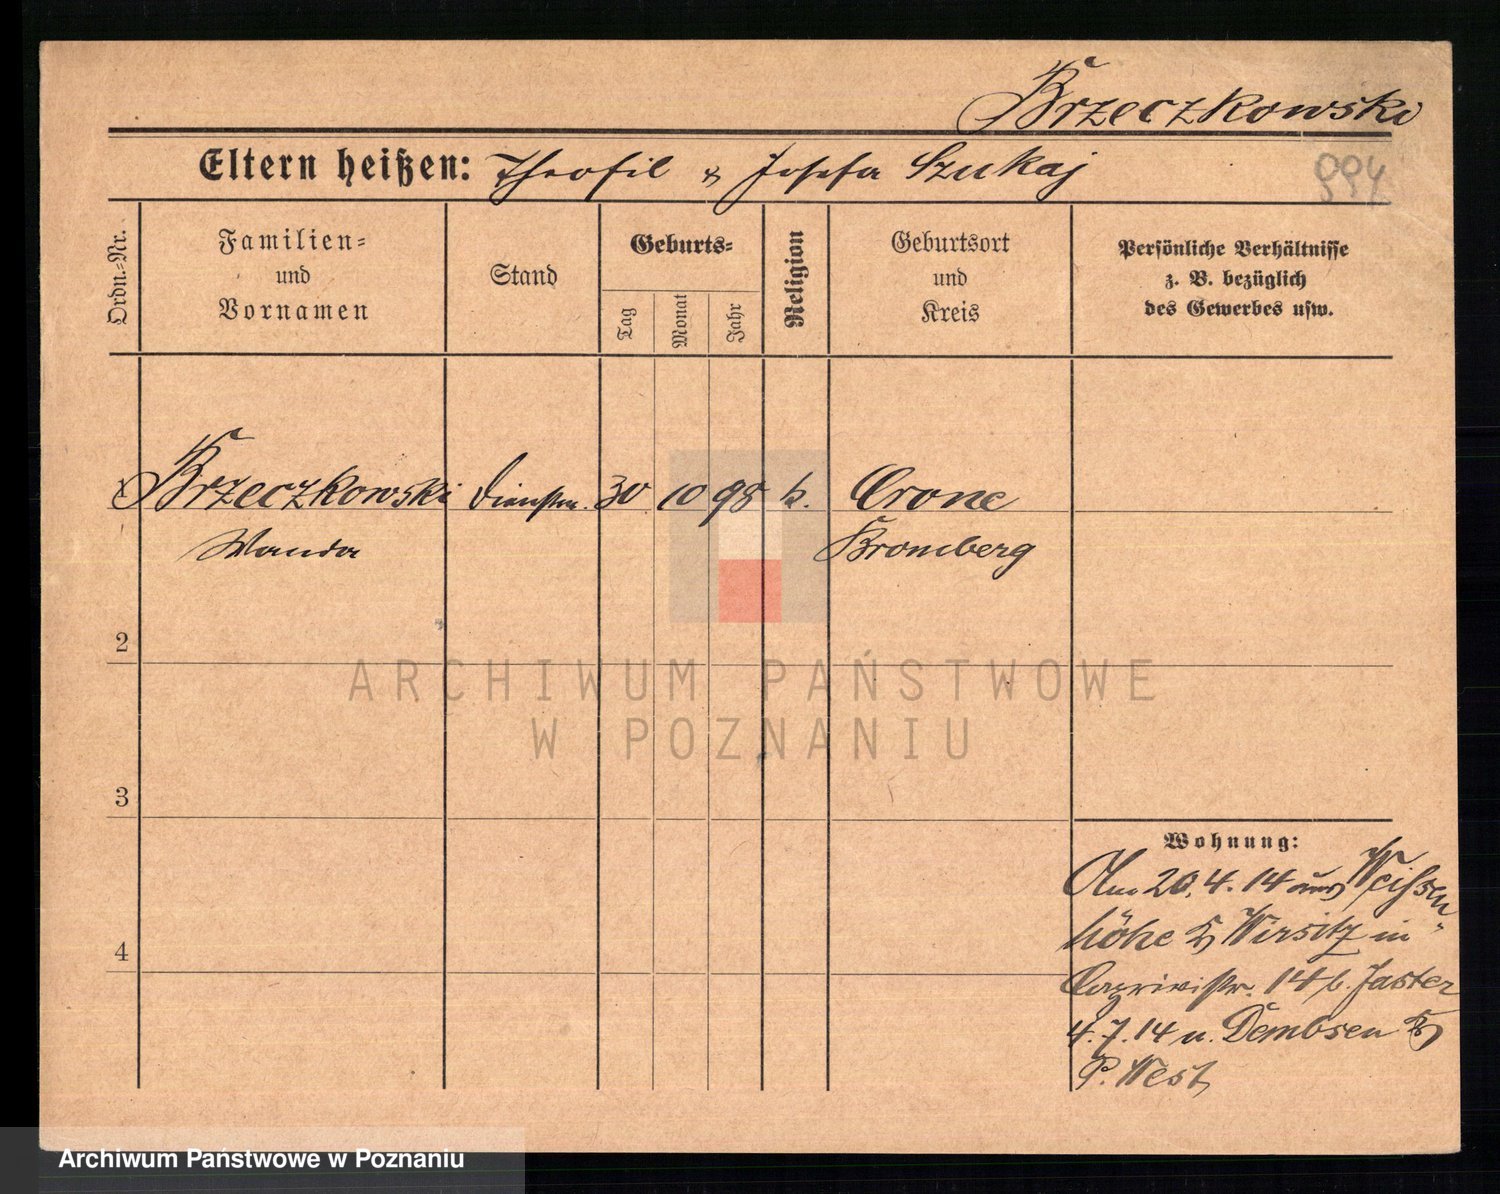 Brzeczkowski
Eltern heißen: Theofil & Josefa Szukaj
994
Ordn.-Nr.
Familien-
und
Vornamen
Stand
Geburts-
Tag
Monat
Jahr
Religion
Geburtsort
und
Kreis
Persönliche Verhältnisse
z. B. bezüglich
des Gewerbes usw.
1 Brzeczkowski Dienstm. 30 10 98 k. Crone
Wanda Bromberg
2
3
4
Wohnung:
Am 20.4.14 aus Weißen
höhe Kr Wirsitz in
Caprivistr. 14 b. Jaster
4.7.14 n. Dembsen Kr
P. West
ARCHIWUM PAŃSTWOWE
W POZNANIU
Archiwum Państwowe w Poznaniu